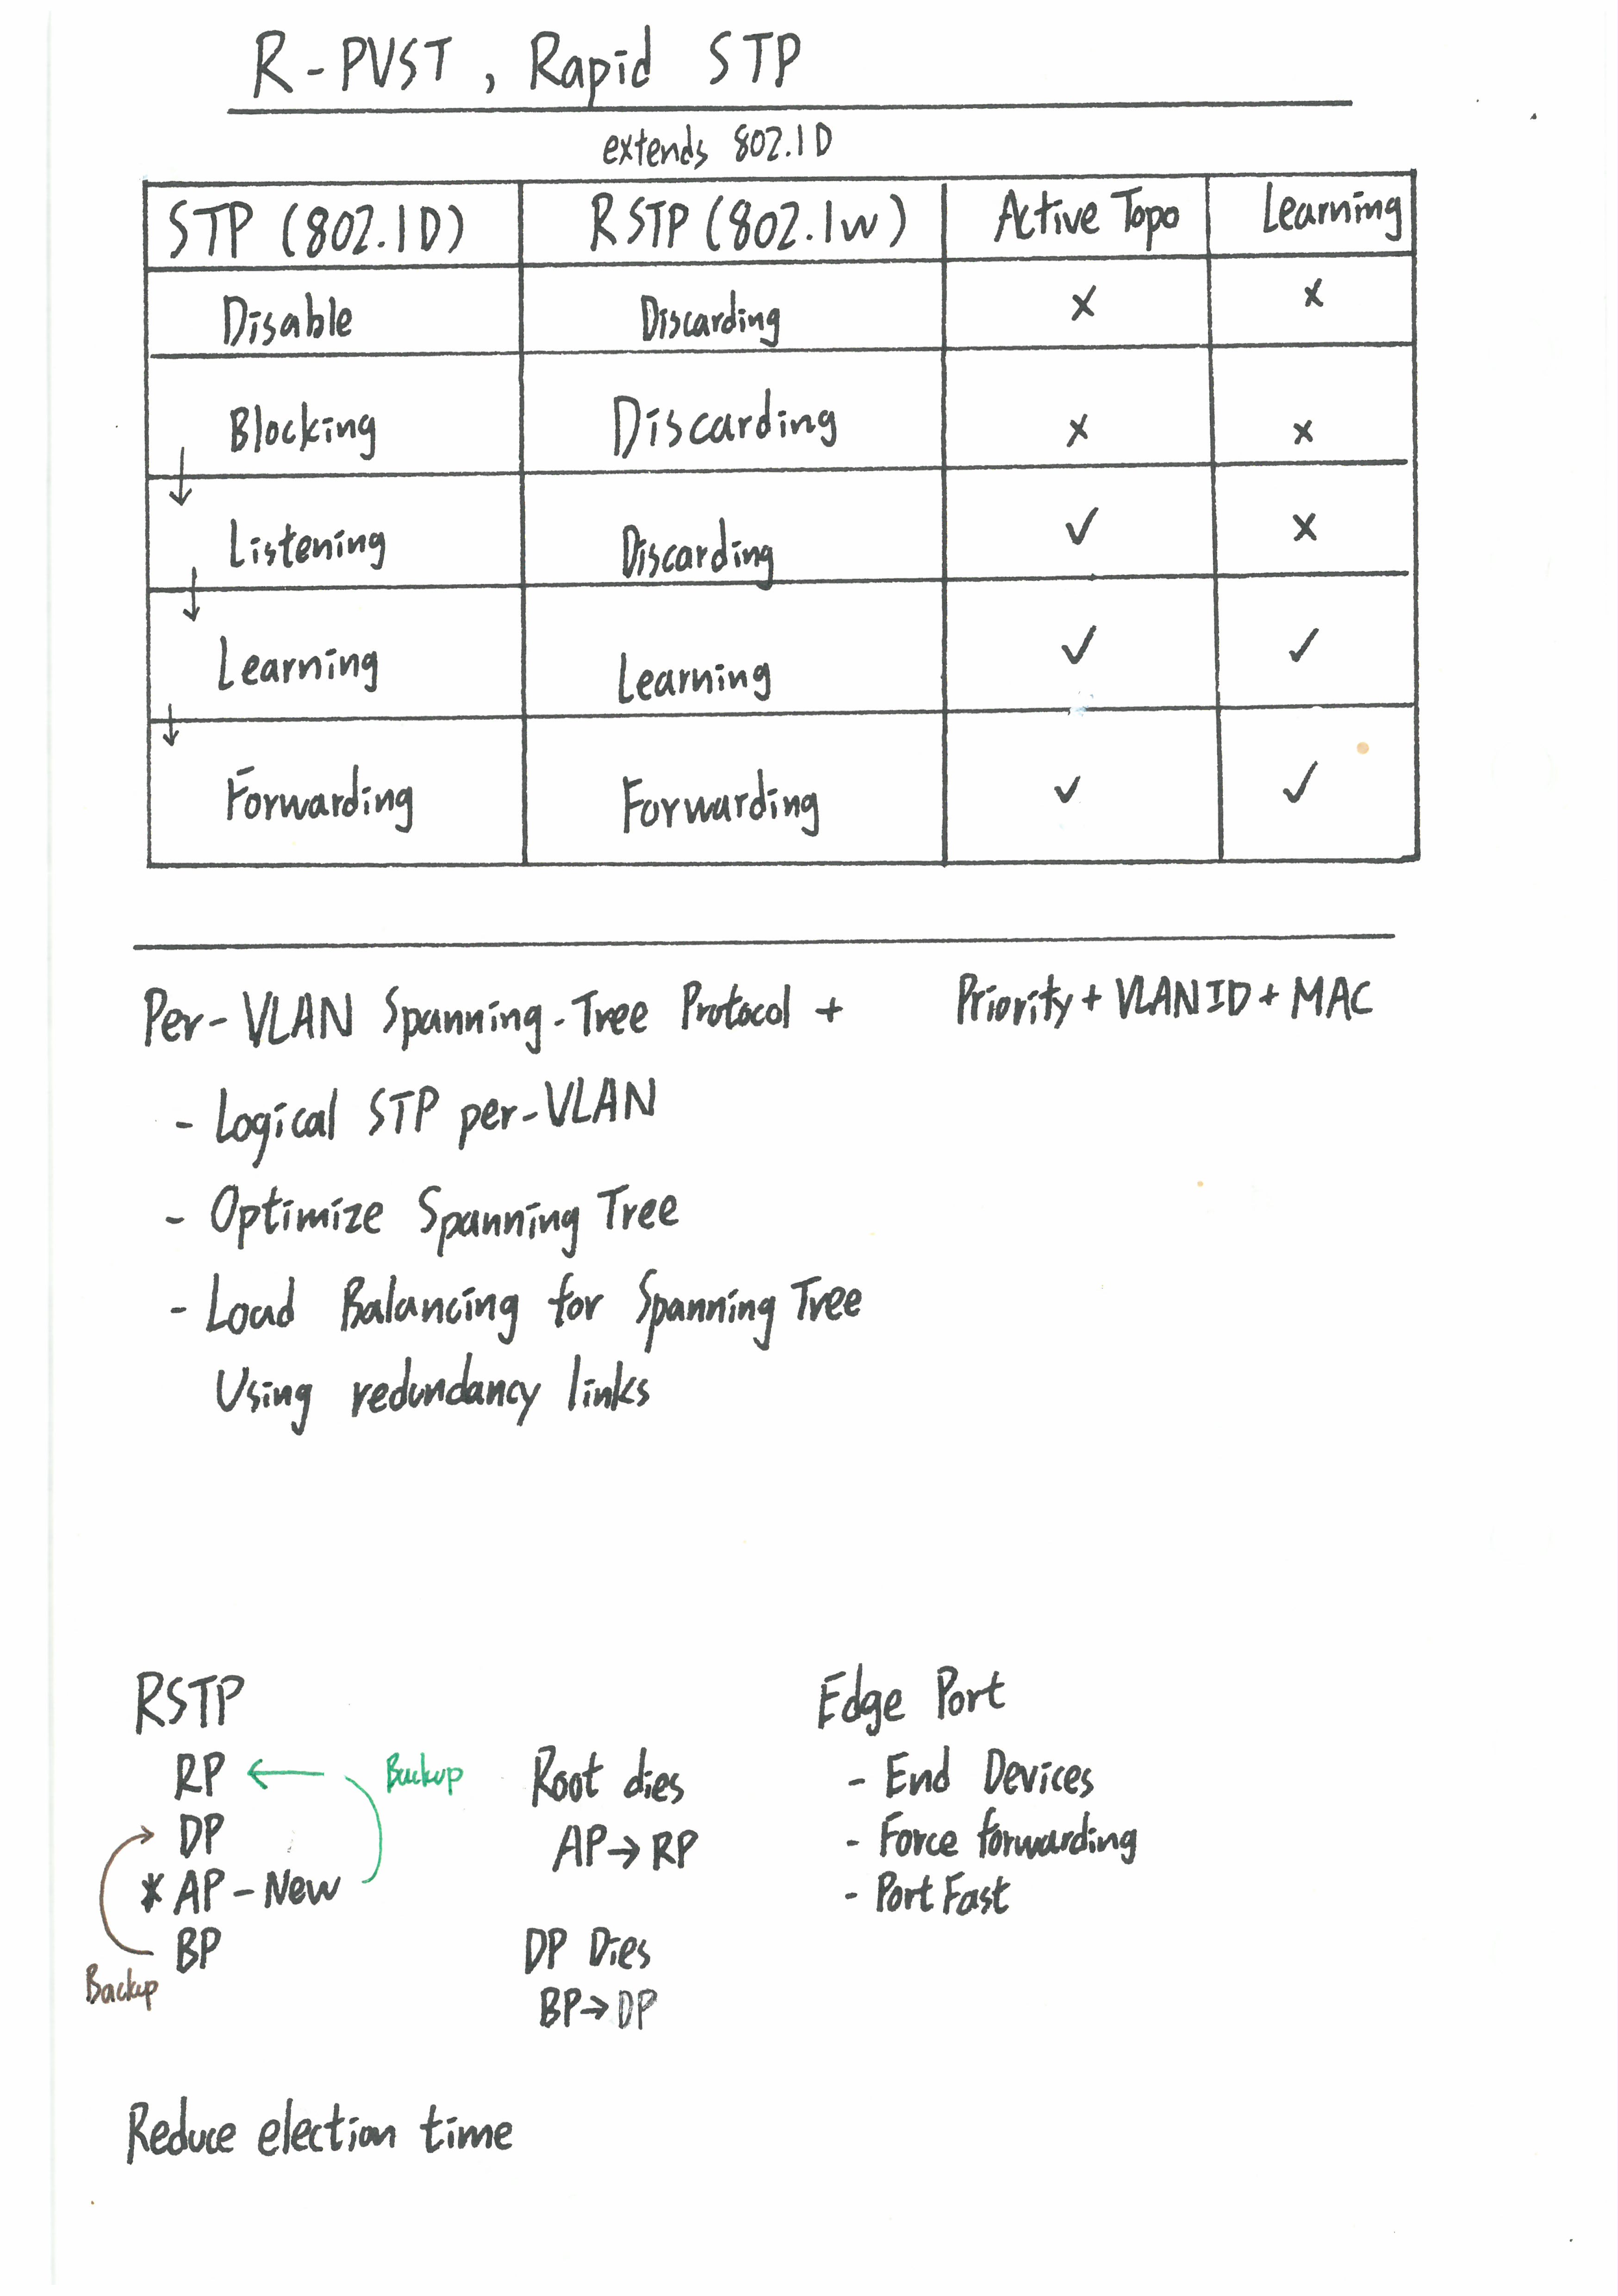 R-PVST, Rapid STP
extends 802.1D
STP (802.1D) RSTP (802.1w) Active Topo Learning
Disable Discarding ✗ ✗
Blocking Discarding ✗ ✗
↓
Listening Discarding ✓ ✗
↓
Learning Learning ✓ ✓
↓
Forwarding Forwarding ✓ ✓
Per-VLAN Spanning-Tree Protocol + Priority + VLAN ID + MAC
- Logical STP per-VLAN
- Optimize Spanning Tree
- Load Balancing for Spanning Tree
Using redundancy links
RSTP
RP ← Backup
DP
* AP - New
BP
Backup
Root dies
AP → RP
DP Dies
BP → DP
Edge Port
- End Devices
- Force forwarding
- Port Fast
Reduce election time